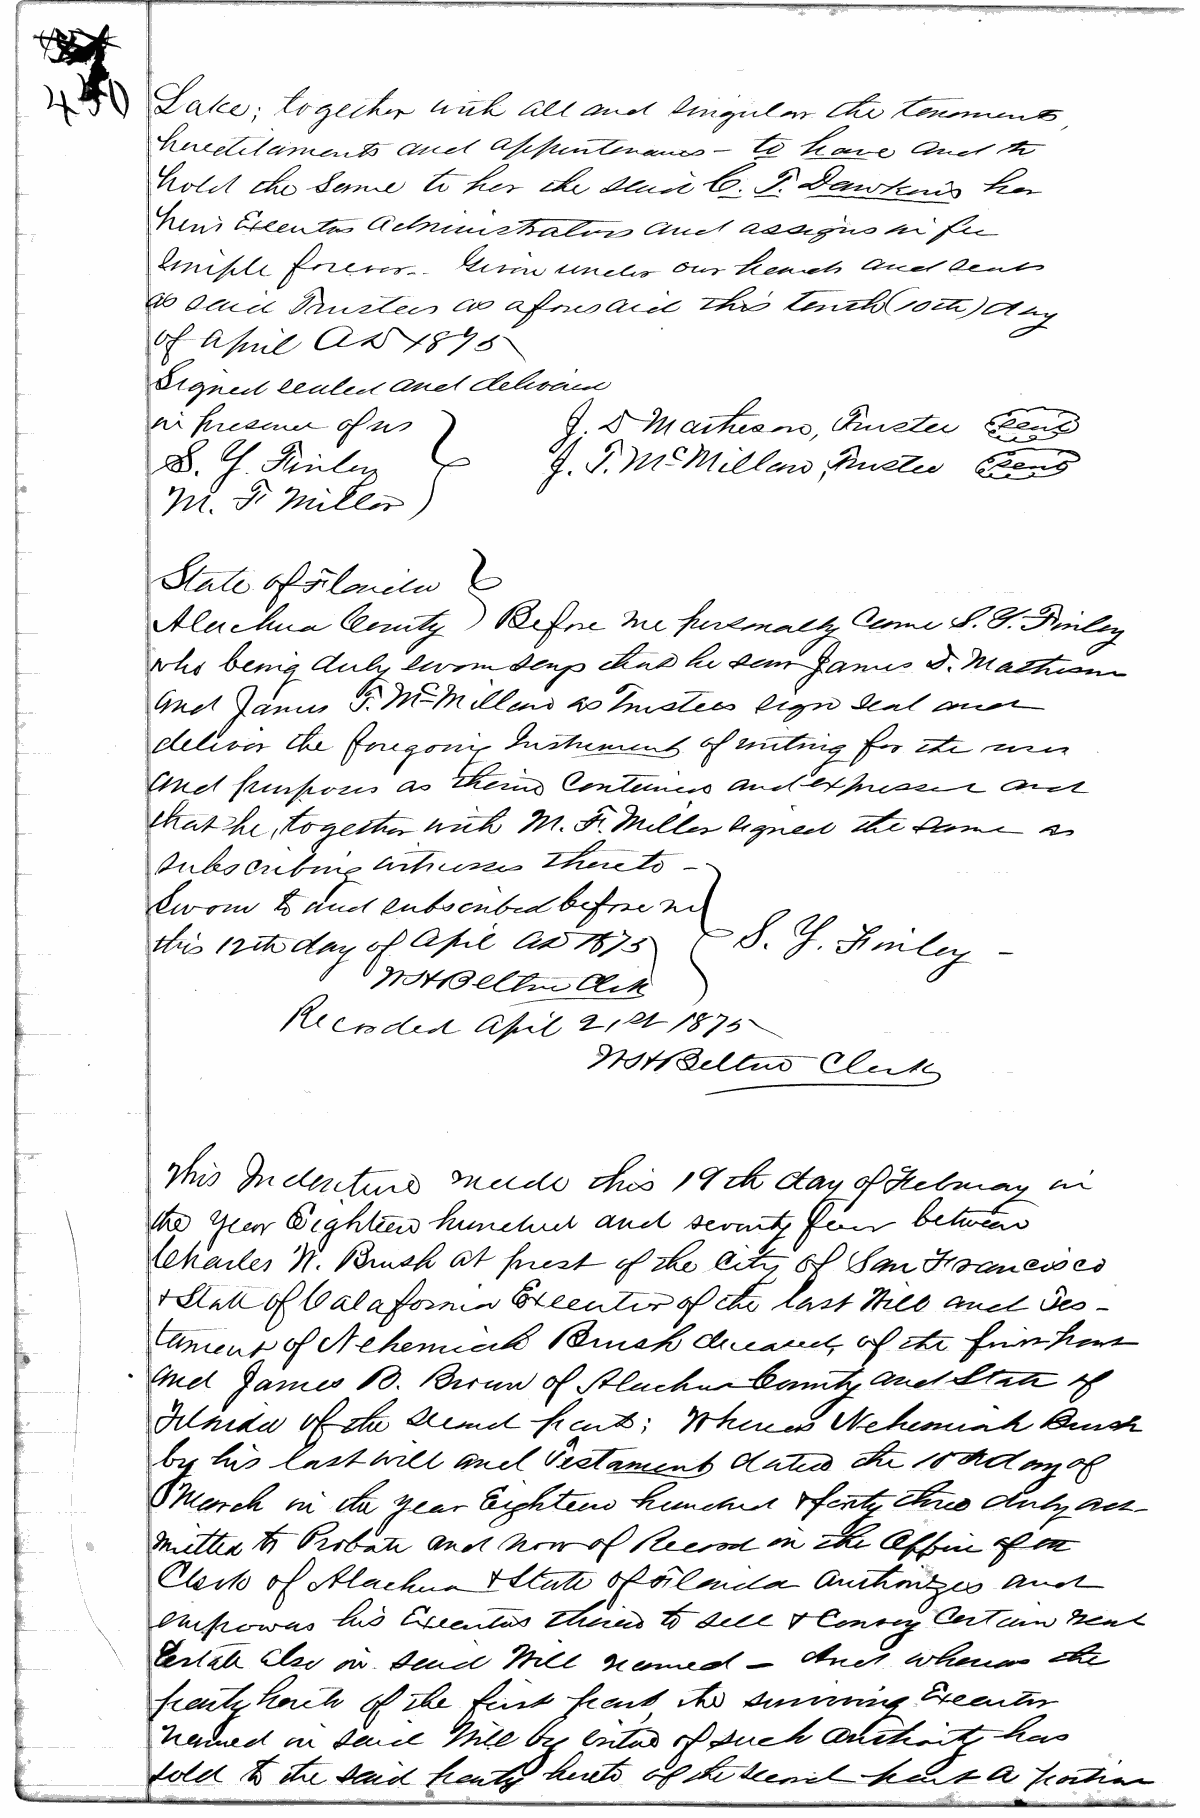 450
Lake; together with all and singular the tenements,
hereditaments and appurtenances - to have and to
hold the same to her the said C. T. Dawkins her
heirs Executors Administrators and assigns in fee
simple forever. Given under our hands and seals
as said Trustees as aforesaid this tenth (10th) day
of April AD 1875
Signed sealed and delivered
in presence of us
J. D Matheson, Trustee Seal
S. Y. Finley
J. T. McMillan, Trustee Seal
M. F Miller
State of Florida
Alachua County Before me personally Came S. Y. Finley
who being duly sworn says that he saw James D. Matheson
and James T. McMillan as Trustees sign seal and
deliver the foregoing Instrument of writing for the uses
and purposes as therein Contained and expressed and
that he, together with M. F. Miller signed the same as
subscribing witnesses thereto -
Sworn to and subscribed before me
this 12th day of April AD 1875
S. Y. Finley -
W H Belton Clk
Recorded April 21st 1875
W H Belton Clerk
This Indenture made this 19th day of February in
the year Eighteen hundred and seventy four between
Charles N. Brush at prest of the City of San Francisco
& State of Calafornia Executor of the last Will and Tes-
tament of Nehemiah Brush deceased, of the first part
and James B. Brown of Alachua County and State of
Florida of the second part: Whereas Nehemiah Brush
by his last will and Testament dated the day of
March in the year Eighteen hundred & forty three duly ad-
mitted to Probate and now of Record in the Office of the
Clerk of Alachua & State of Florida authorizes and
empowers his Executors therein to sell & Convey Certain real
Estate also in said Will named - And whereas the
party hereto of the first part, the surviving Executor
named in said Will by virtue of such authority has
sold to the said party hereto of the second part a portion